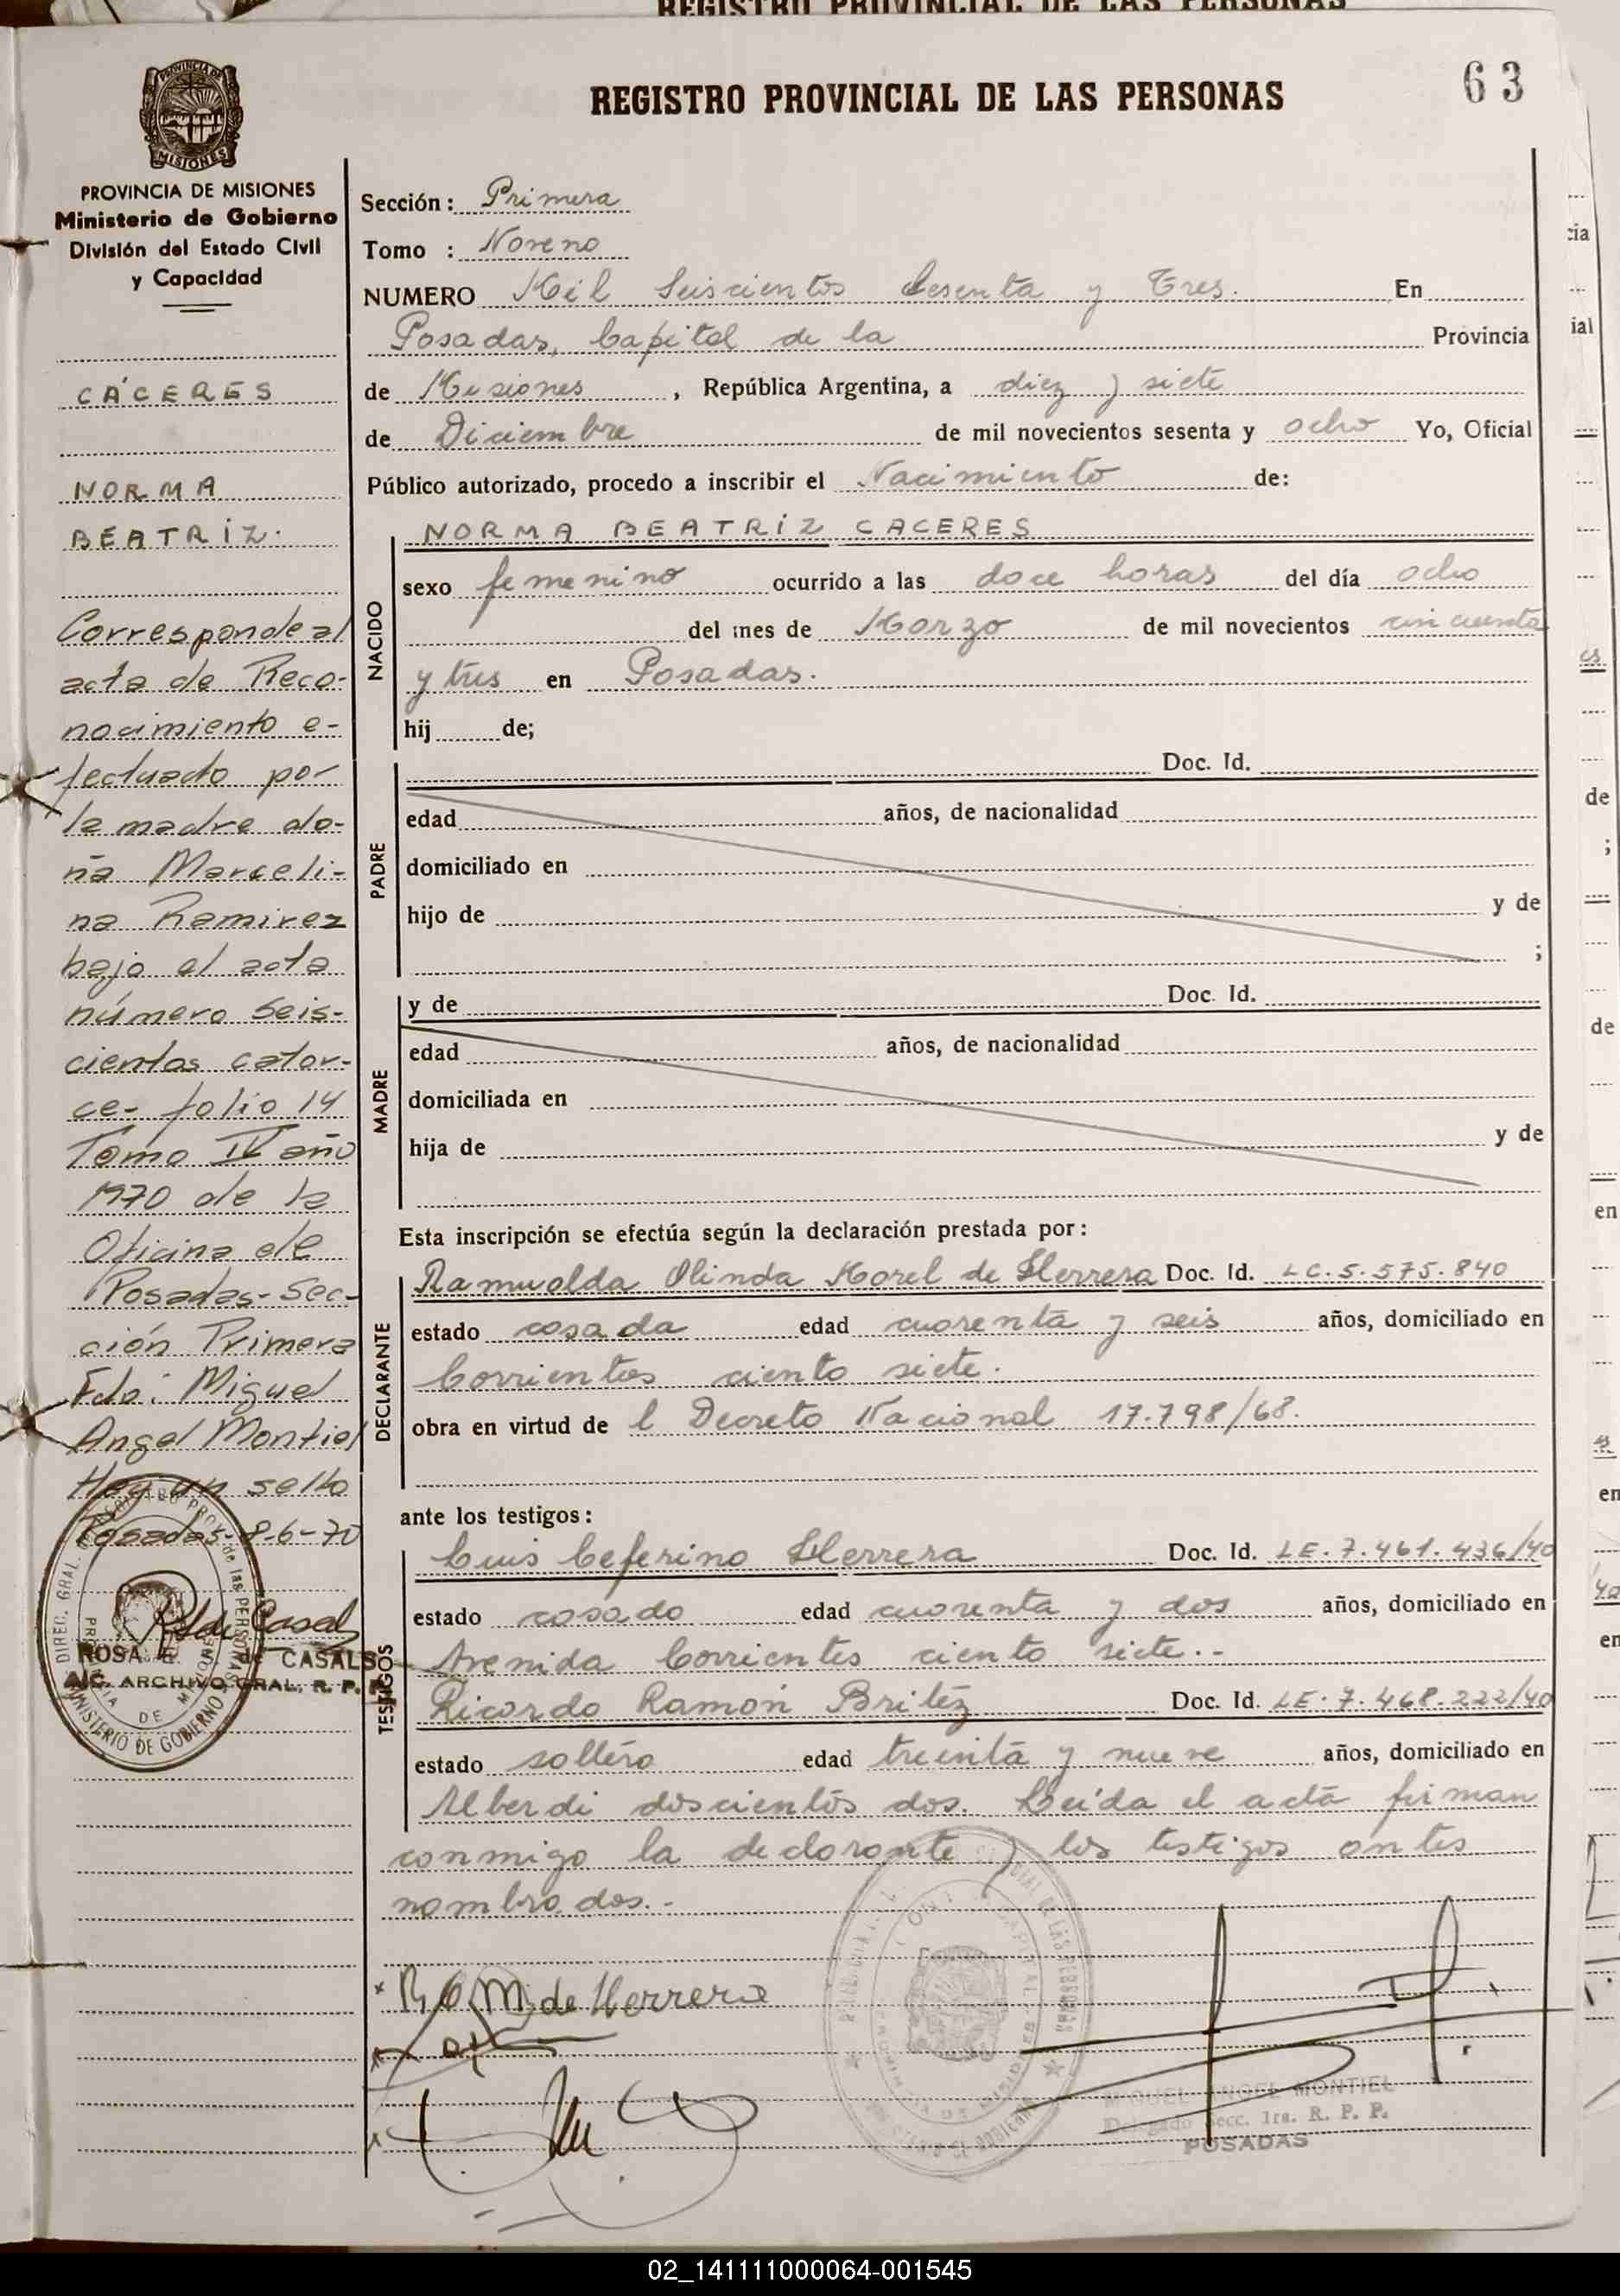 REGISTRO PROVINCIAL DE LAS PERSONAS
63
REGISTRO PROVINCIAL DE LAS PERSONAS
PROVINCIA DE MISIONES
PROVINCIA DE MISIONES
Ministerio de Gobierno
División del Estado Civil
y Capacidad
CÁCERES
NORMA
BEATRIZ.
Corresponde al
acta de Reco-
nocimiento e-
fectuado por
la madre do-
ña Marceli-
na Ramirez
bajo el acta
número seis-
cientos cator-
ce- folio 14
Tomo IV año
1970 de la
Oficina de
Posadas- Sec-
ción Primera
Fdo: Miguel
Angel Montiel
Hay un sello
Posadas- 8-6-70
ROSA E. de CASALS
A/C. ARCHIVO GRAL. R. P. P.
Sección: Primera
Tomo : Noveno
NUMERO Mil Seiscientos Sesenta y Tres. En
Posadas, Capital de la Provincia
de Misiones, República Argentina, a diez y siete
de Diciembre de mil novecientos sesenta y ocho Yo, Oficial
Público autorizado, procedo a inscribir el Nacimiento de:
NACIDO
NORMA BEATRIZ CACERES
sexo femenino ocurrido a las doce horas del día ocho
del mes de Marzo de mil novecientos cincuenta
y tres en Posadas.
hij de;
PADRE
Doc. Id.
edad años, de nacionalidad
domiciliado en
hijo de y de
;
MADRE
y de Doc. Id.
edad años, de nacionalidad
domiciliada en
hija de y de
Esta inscripción se efectúa según la declaración prestada por:
DECLARANTE
Ramualda Olinda Morel de Herrera Doc. Id. LC.5.575.840
estado casada edad cuarenta y seis años, domiciliado en
Corrientes ciento siete.
obra en virtud de l Decreto Nacional 17.798/68.
ante los testigos:
TESTIGOS
Luis Ceferino Herrera Doc. Id. LE.7.461.436/40
estado casado edad cuarenta y dos años, domiciliado en
Avenida Corrientes ciento siete.-
Ricardo Ramón Britez Doc. Id. LE.7.468.222/40
estado soltero edad treinta y nueve años, domiciliado en
Alberdi doscientos dos. Leída el acta firman
conmigo la declarante y los testigos antes
nombrados.-
R.O.M. de Herrera
MIGUEL ANGEL MONTIEL
Delegado Secc. 1ra. R. P. P.
POSADAS
02_141111000064-001545